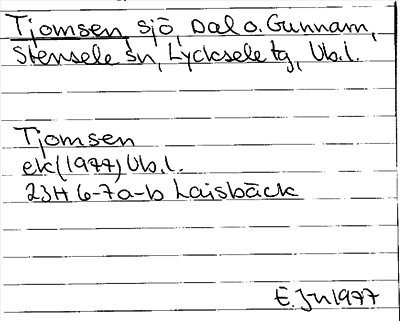 Tjomsen, sjö, Dal o. Gunnarn,
Stensele sn, Lycksele tg, Vb.l.
Tjomsen
ek (1977) Vb.l.
23H 6-7a-b Laisbäck
E. Jn 1977